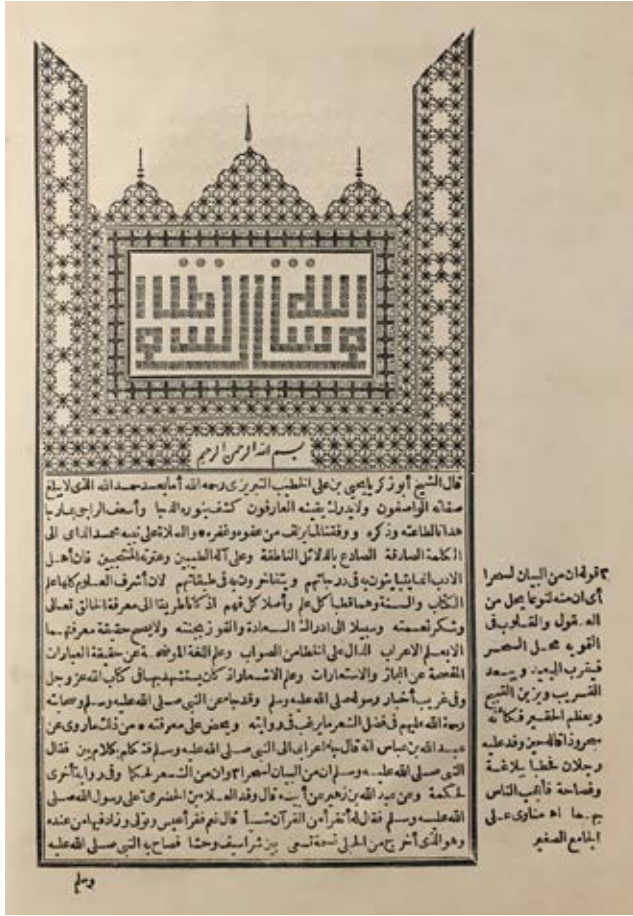 بسم الله الرحمن الرحيم
قال الشيخ أبو زكريا يحيى بن على الخطيب التبريزى رحمه الله أما بعد حمد الله الذى لا يبلغ
صفاته الواصفون ولا يدرك العارفون كشف بنوره الدجا وأسعف الراجى بما رجا
هدانا لطاعته وذكره ووفقنا لما يزلف من عفوه وغفره والصلاة على نبيه محمد الداعى الى
الكلمة الصادقة الصادع بالدلائل الناطقة وعلى آله الطيبين وعترته المنتجبين فان أهل
الادب انما يتباينون به فى درجاتهم ويتفاخرون به فى طبقاتهم لان أشرف العلوم كلها علم
الكتاب والسنة وهما قطبا كل علم وأصلا كل فهم اذ كانا طريقا الى معرفة الخالق تعالى
وشكر نعمته وسبيلا الى ادراك السعادة والفوز بجنته ولا يصح حقيقة معرفتهما
الا بعلم الاعراب الدال على الخطا من الصواب وعلم اللغة الموضحة عن حقيقة العبارات
المفصحة عن المجاز والاستعارات وعلم الاشعار اذ كان يستشهد بها فى كتاب الله عز وجل
وفى غريب أخبار رسوله صلى الله عليه وسلم وقد جاء عن النبى صلى الله عليه وسلم وصحابته
رحمة الله عليهم فى فضل الشعر ما يرغب فى روايته ويحض على معرفته من ذلك ما روى عن
عبد الله بن عباس انه قال جاء اعرابى الى النبى صلى الله عليه وسلم فتكلم بكلام بين فقال
النبى صلى الله عليه وسلم ان من البيان لسحرا ٣ وان من الشعر لحكما وفى رواية أخرى
لحكمة وعن عبد الله بن زهير عن أبيه قال وفد العلاء بن الحضرمى على رسول الله صلى
الله عليه وسلم فقال له أتقرأ من القرآن شيأ قال نعم فقرأ عبس وتولى وزاد فيها من عنده
وهو الذى أخرج من الحبلى نسمة تسعى بين شراسيف وحشا فصاح به النبى صلى الله عليه
وسلم
٣ قوله ان من البيان لسحرا
أى ان منه لنوعا يحل من
العقول والقلوب فى
التمويه محل السحر
فيقرب البعيد ويبعد
القريب ويزين القبيح
ويعظم الحقير فكأنه
سحر وذا قاله حين وفد عليه
رجلان فخطبا ببلاغة
وفصاحة فأعجب الناس
بهما اه مناوى على
الجامع الصغير